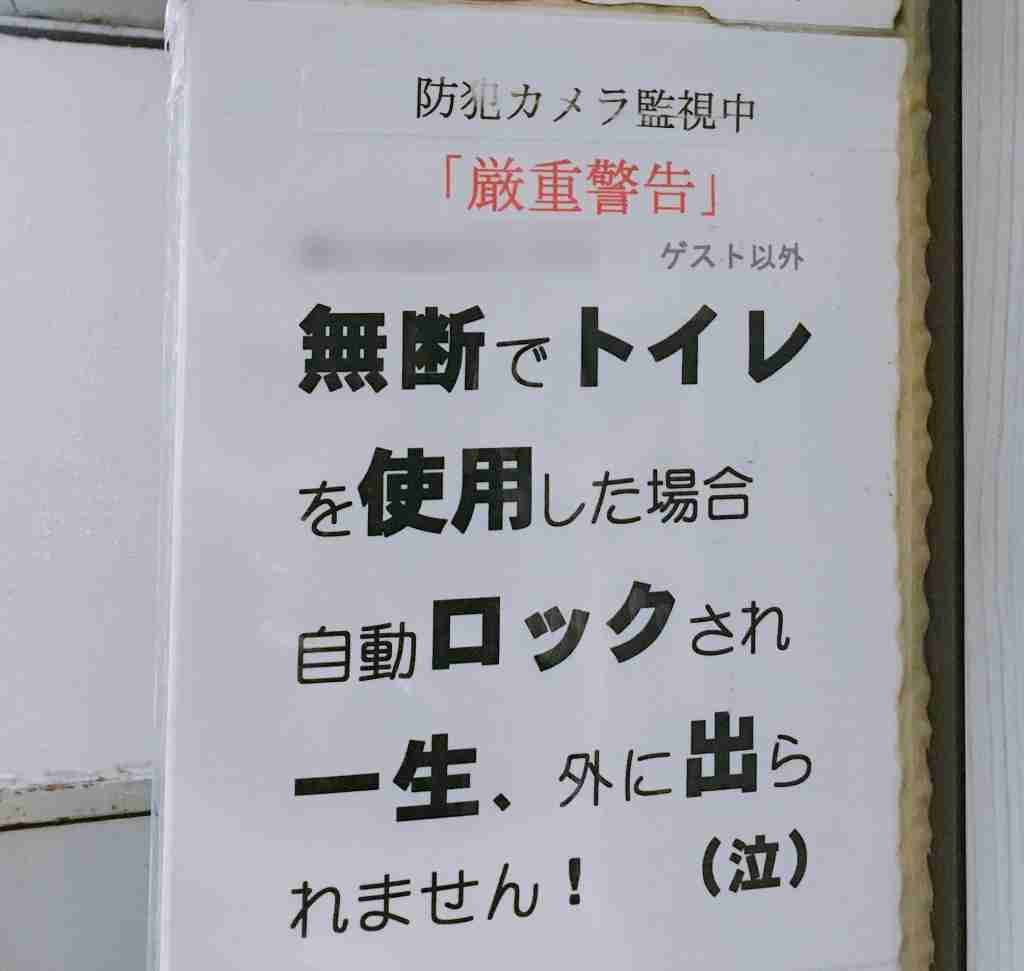 防犯カメラ監視中
「厳重警告」
ゲスト以外
無断でトイレ
を使用した場合
自動ロックされ
一生、外に出ら
れません！ （泣）